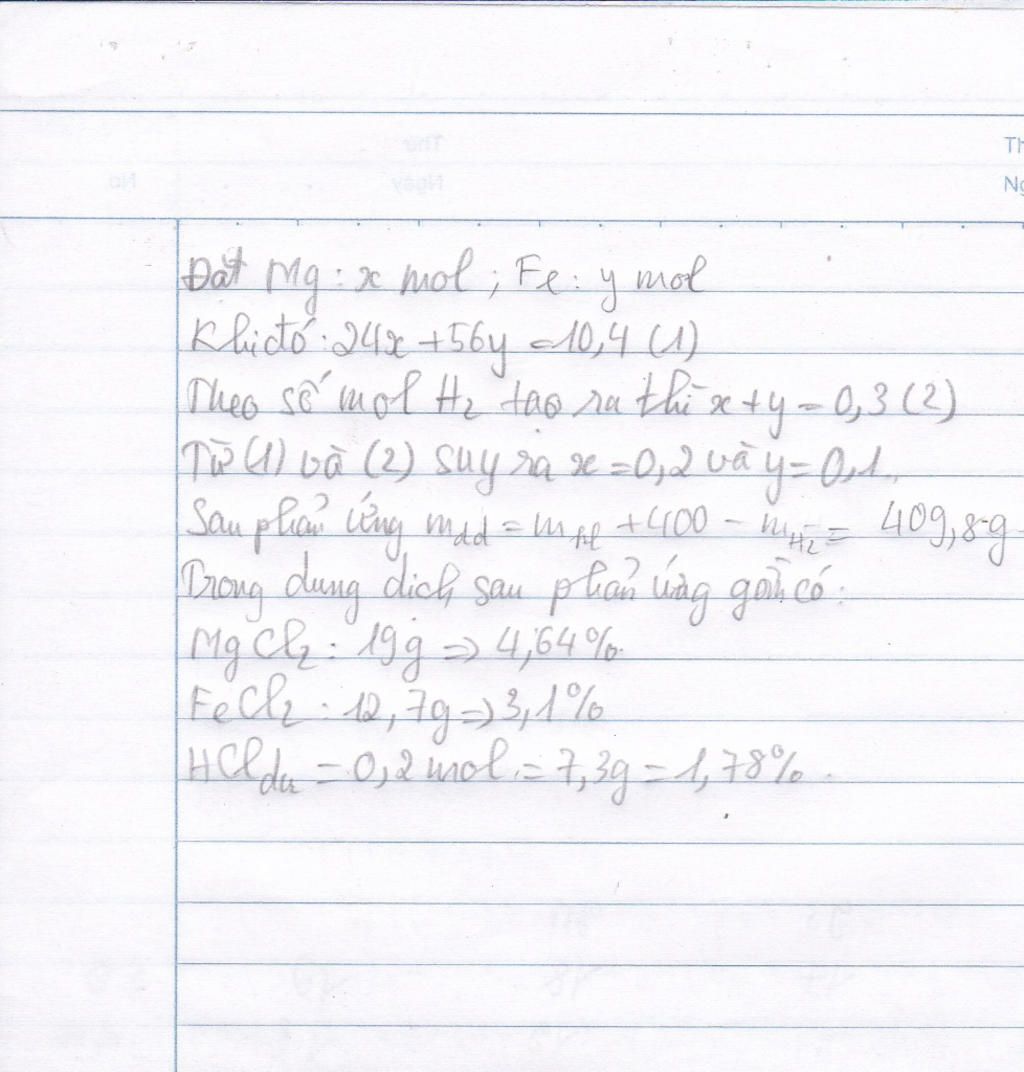 Thứ
Th
No
Ngày
Ng
Đặt Mg : x mol ; Fe : y mol
Khi đó : 24x + 56y = 10,4 (1)
Theo số mol H₂ tạo ra thì x + y = 0,3 (2)
Từ (1) và (2) suy ra x = 0,2 và y = 0,1.
Sau phản ứng m_dd = m_hh + 400 - m_H₂ = 409,8g
Trong dung dịch sau phản ứng gồm có :
MgCl₂ : 19g => 4,64%.
FeCl₂ : 12,7g => 3,1%
HCl dư = 0,2 mol = 7,3g = 1,78%.